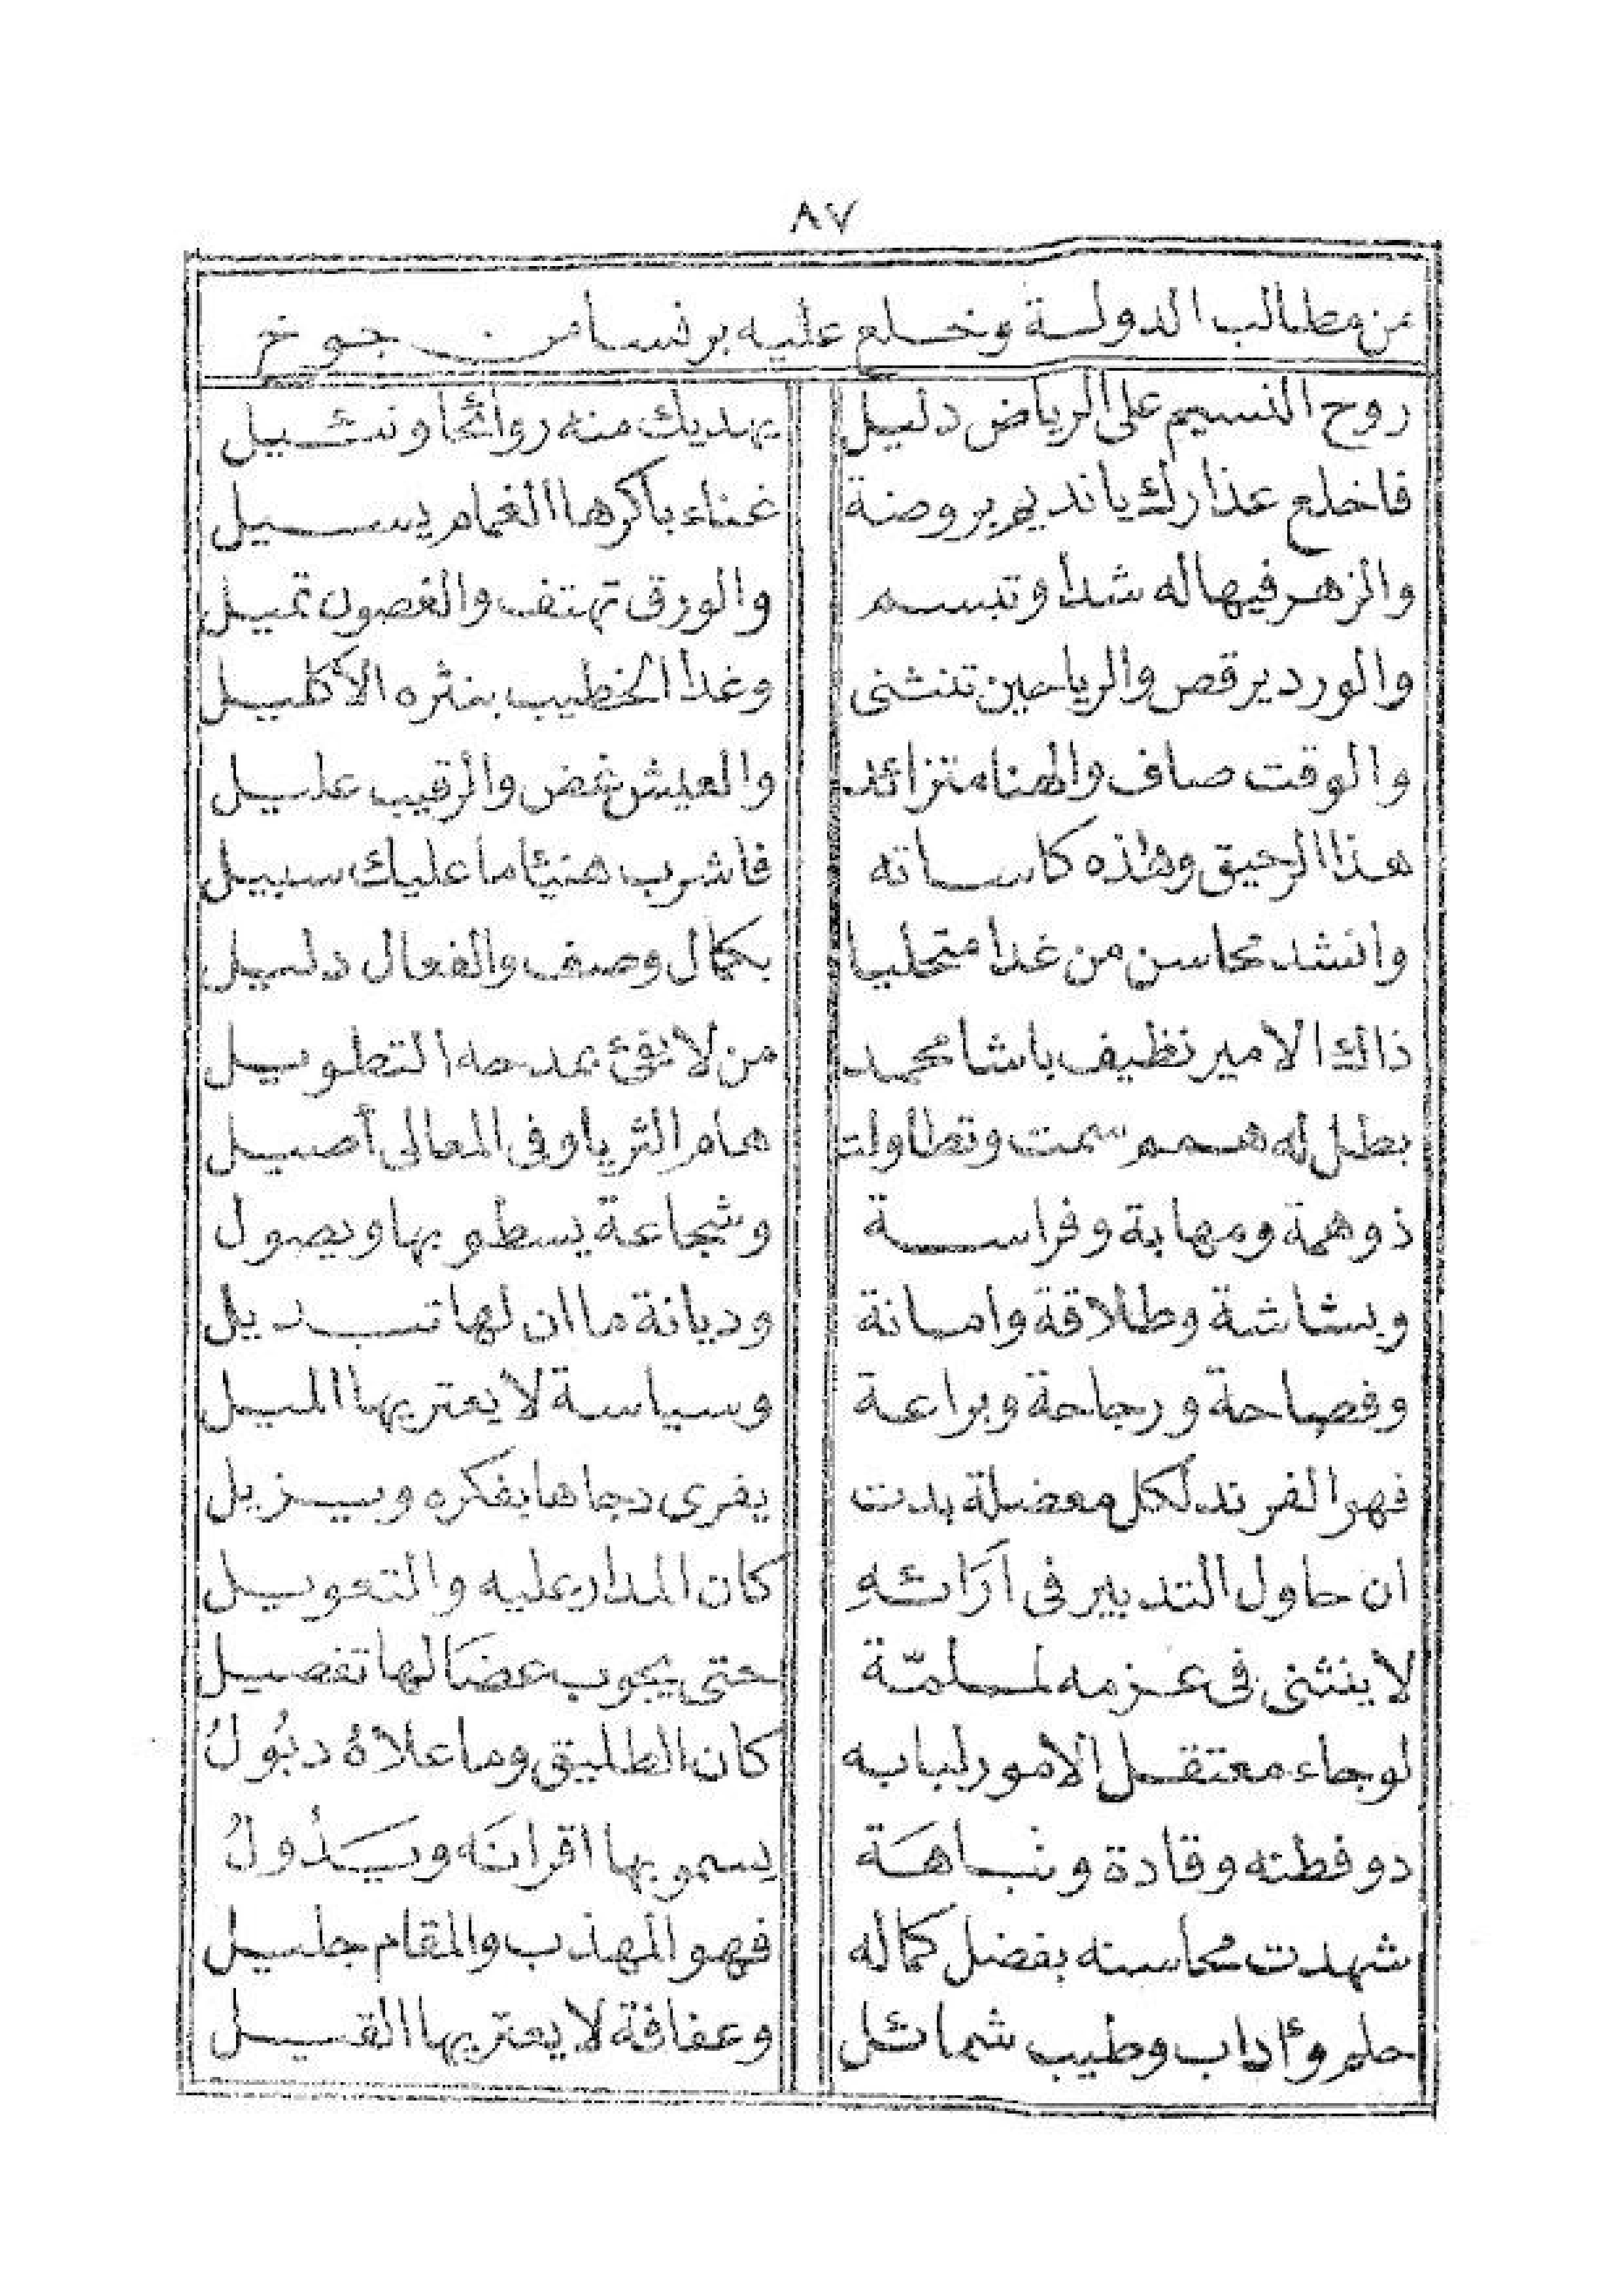 ٨٧
من مطالب الدولة وخلع عليه برنسا من جوخ
روح النسيم على الرياض دليل يهديك منه روائحا ونشيل
فاخلع عذارك يا نديم بروضة غناء باكرها الغمام يسيل
والزهر فيها له شدا وتبسم والورق تهتف والغصون تميل
والورد يرقص والرياحين تنثنى وغدا الخطيب بنثره الأكليل
والوقت صاف والهنا متزائد والعيش غض والرقيب عليل
هذا الرحيق وهذه كاساته فاشرب هنيئا ما عليك سبيل
وانشد محاسن من غدا متحليا بكمال وصف والفعال دليل
ذاك الامير نظيف باشا محمد من لا يفئ بمدحه التطويل
بطل له همم سمت وتطاولت هام الثريا وفى المعالى أصيل
ذو همة ومهابة وفراسة وشجاعة يسطو بها ويصول
وبشاشة وطلاقة وامانة وديانة ما ان لها تبديل
وفصاحة ورجاحة وبراعة وسياسة لا يعتريها الميل
فهو الفرند لكل معضلة بدت يفرى دجاها بفكره ويزيل
ان حاول التدبير فى اَرَائهِ كان المدار عليه والتعويل
لا ينثنى فى عزمه لملمّة حتى يجوب عضَالها تفصيل
لو جاء معتقل الامور لبابه كان الطليق وما علاهُ دبُولُ
دو فطنه وقادة ونباهَة يسمو بها اقرانَه ويَدُولُ
شهدت محاسنه بفضل كماله فهو المهذب والمقام جليل
حلم وأداب وطيب شمائل وعفافة لا يعتريها القيل